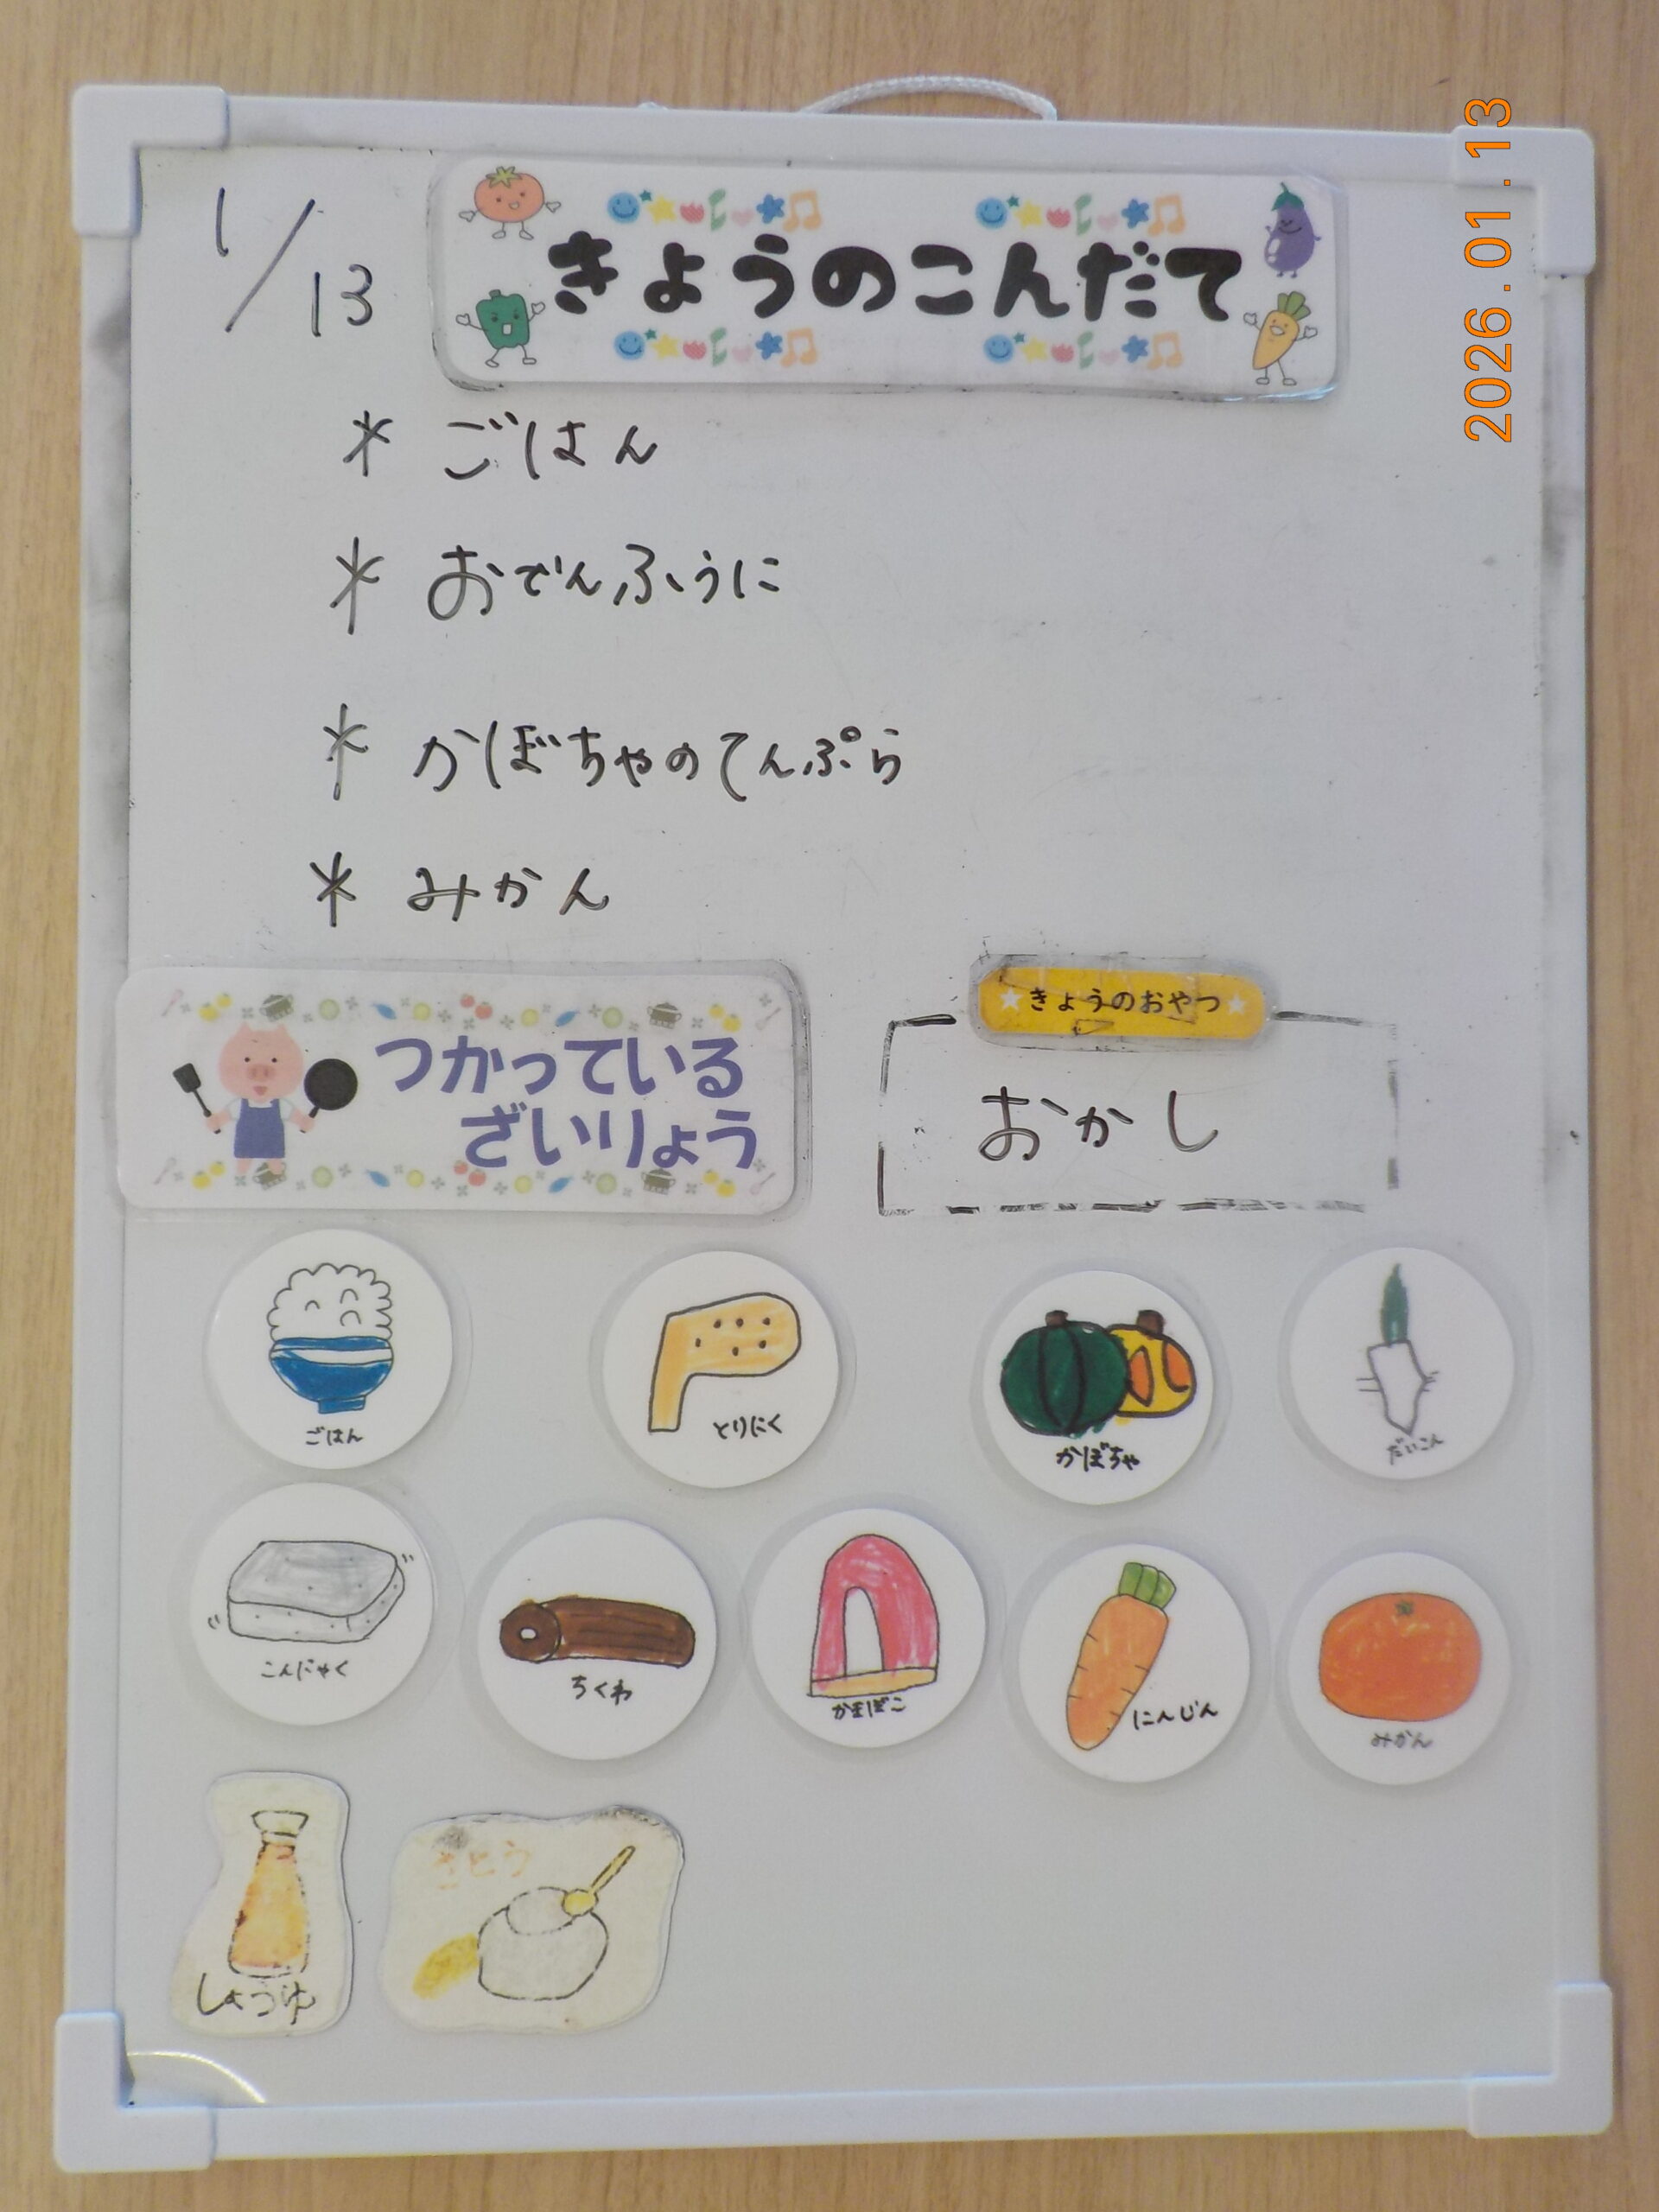 2026.01.13
1/13
きょうのこんだて
* ごはん
* おでんふうに
* かぼちゃのてんぷら
* みかん
つかっている
ざいりょう
きょうのおやつ
おかし
ごはん
とりにく
かぼちゃ
だいこん
こんにゃく
ちくわ
かまぼこ
にんじん
みかん
しょうゆ
さとう